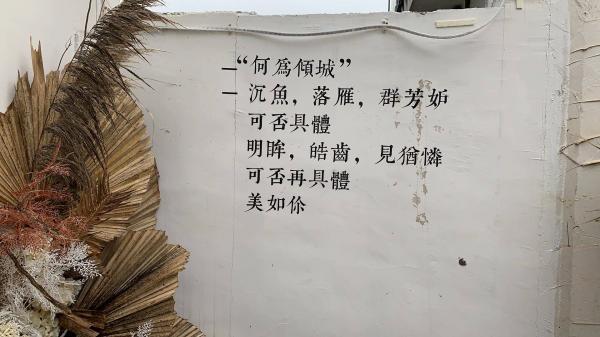 —“何為傾城”
—沉魚，落雁，群芳妒
可否具體
明眸，皓齒，見猶憐
可否再具體
美如你